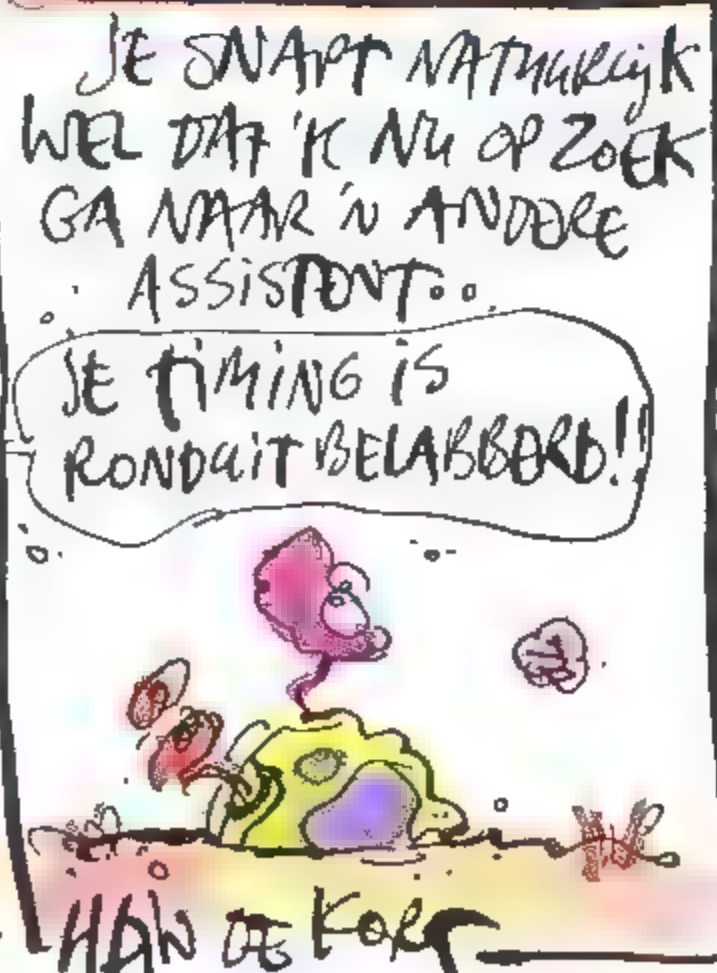 JE SNAPT NATUURLIJK
WEL DAT 'K NU OP ZOEK
GA NAAR 'N ANDERE
ASSISTENT..
JE TIMING IS
RONDUIT BELABBERD!!
HAN DE KORT